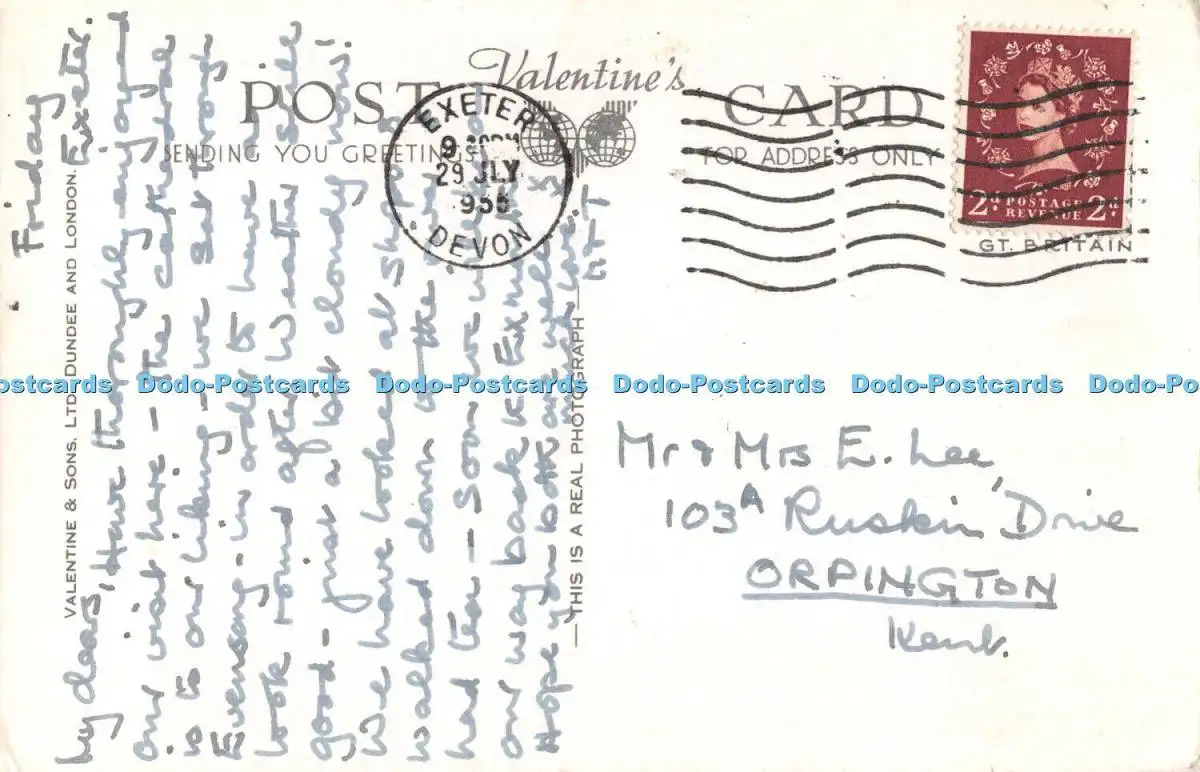 POST CARD
Valentine's
SENDING YOU GREETINGS
FOR ADDRESS ONLY
EXETER
9
29 JLY
955
DEVON
2D POSTAGE REVENUE 2D
GT. BRITAIN
VALENTINE & SONS, LTD. DUNDEE AND LONDON.
THIS IS A REAL PHOTOGRAPH
Exeter.
Friday
My dears, Have thoroughly enjoyed
our visit here - the cathedral
is to our liking - we sat through
Evensong - in order to have a
look round after. Weather still
good - just a bit cloudy now!
We have looked at shops
walked down to the river
had tea - Soon we will be on
our way back to Exmouth
Hope you both are well
love.
Mr & Mrs E. Lee,
103A Ruskin Drive
ORPINGTON
Kent.
Dodo-Postcards Dodo-Postcards Dodo-Postcards Dodo-Postcards Dodo-Postcards Dodo-Postcards